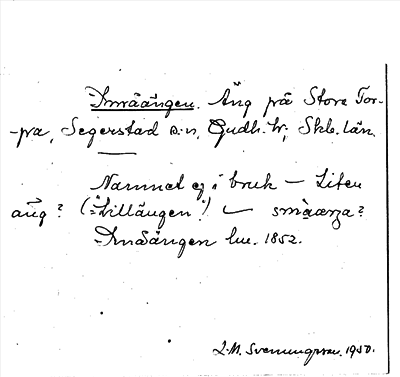 Smäängen. Äng på Stora Tor-
-pa, Segerstad s:n, Gudh. hr; Skb. län.
Namnet ej i bruk – Liten
äng? ("Lillängen"!) – småarga?
Smäängen lm. 1852.
L.M. Svenungsson. 1930.